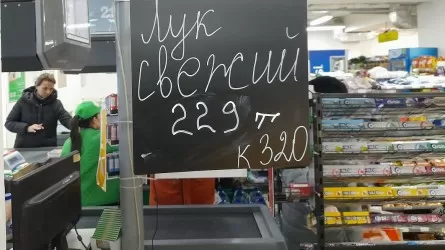 Лук
свежий
229 т
к 320